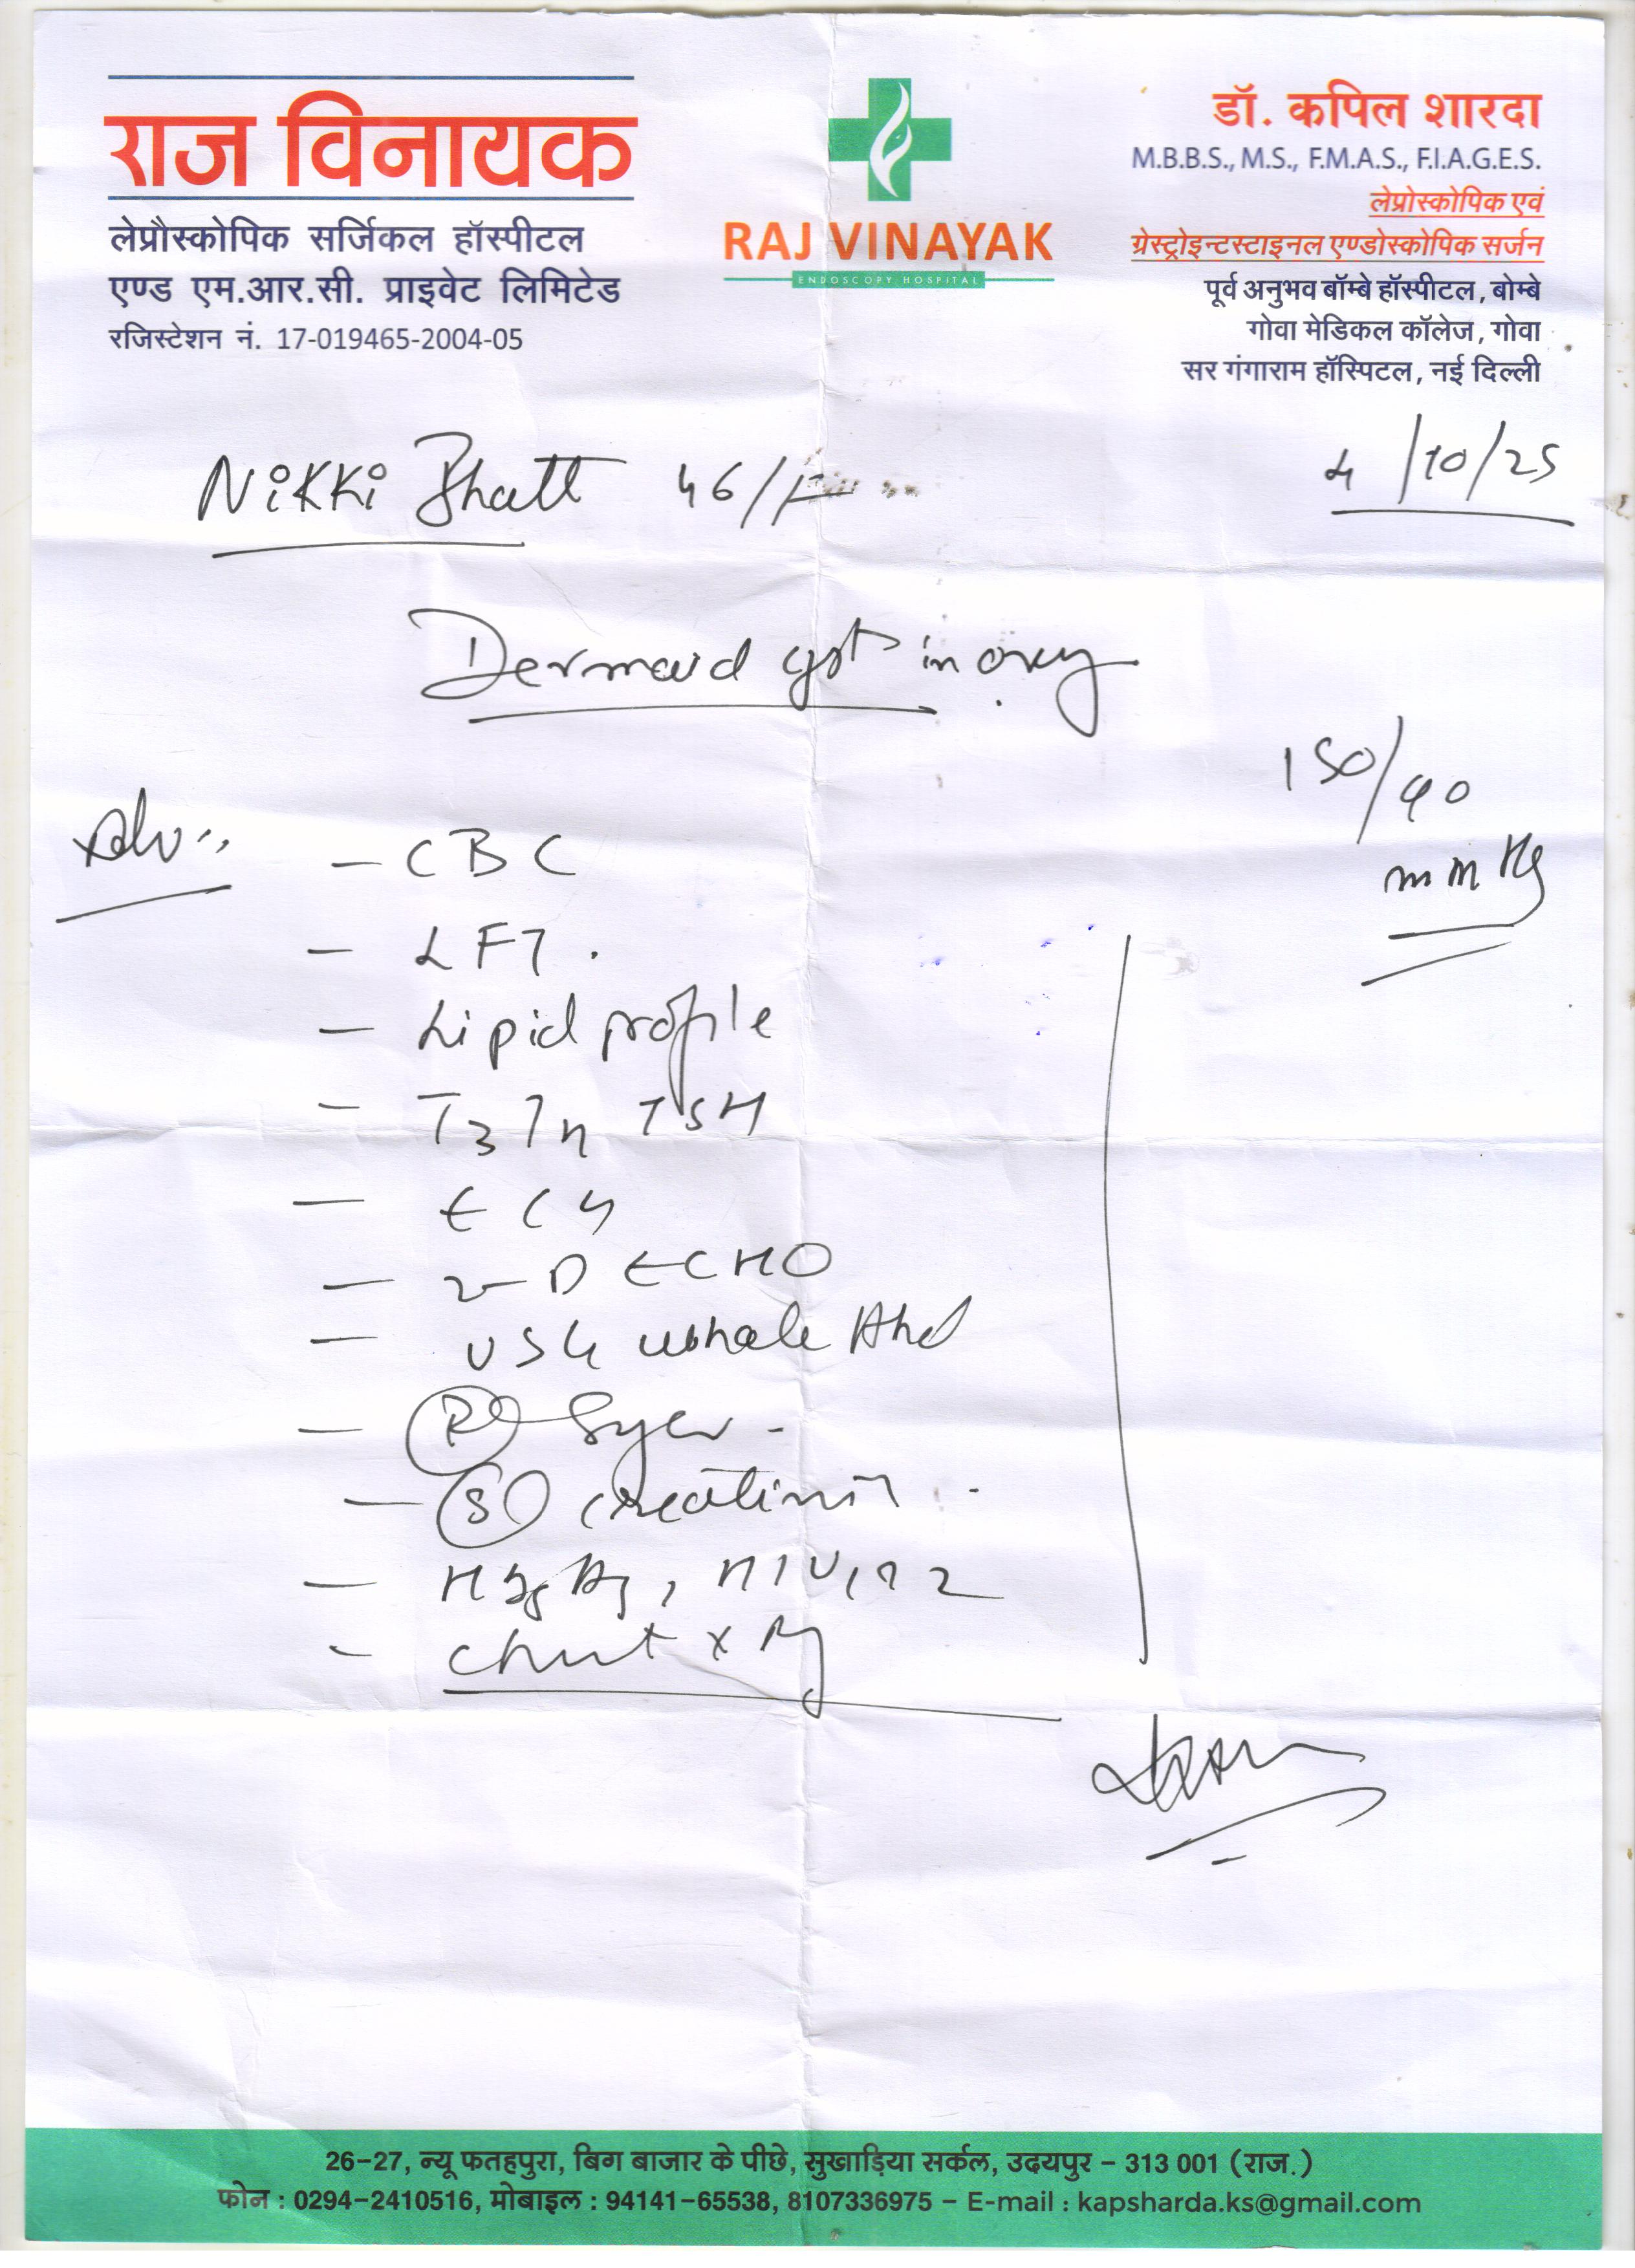 राज विनायक
लेप्रौस्कोपिक सर्जिकल हॉस्पीटल
एण्ड एम.आर.सी. प्राइवेट लिमिटेड
रजिस्टेशन नं. 17-019465-2004-05
RAJ VINAYAK
ENDOSCOPY HOSPITAL
डॉ. कपिल शारदा
M.B.B.S., M.S., F.M.A.S., F.I.A.G.E.S.
लेप्रोस्कोपिक एवं
ग्रेस्ट्रोइन्टस्टाइनल एण्डोस्कोपिक सर्जन
पूर्व अनुभव बॉम्बे हॉस्पीटल, बोम्बे
गोवा मेडिकल कॉलेज, गोवा
सर गंगाराम हॉस्पिटल, नई दिल्ली
Nikki Bhatt 46/F
4/10/25
Dermoid cyst in
150/90
mm Hg
Adv:
- CBC
- LFT.
- Lipid profile
- T3 T4 TSH
- ECG
- 2-D ECHO
- USG whole Abd
- R Sugar -
- S creatinin -
- HBsAg, HIV 1 2
- Chest x Ray
26-27, न्यू फतहपुरा, बिग बाजार के पीछे, सुखाड़िया सर्कल, उदयपुर - 313 001 (राज.)
फोन : 0294-2410516, मोबाइल : 94141-65538, 8107336975 - E-mail : kapsharda.ks@gmail.com